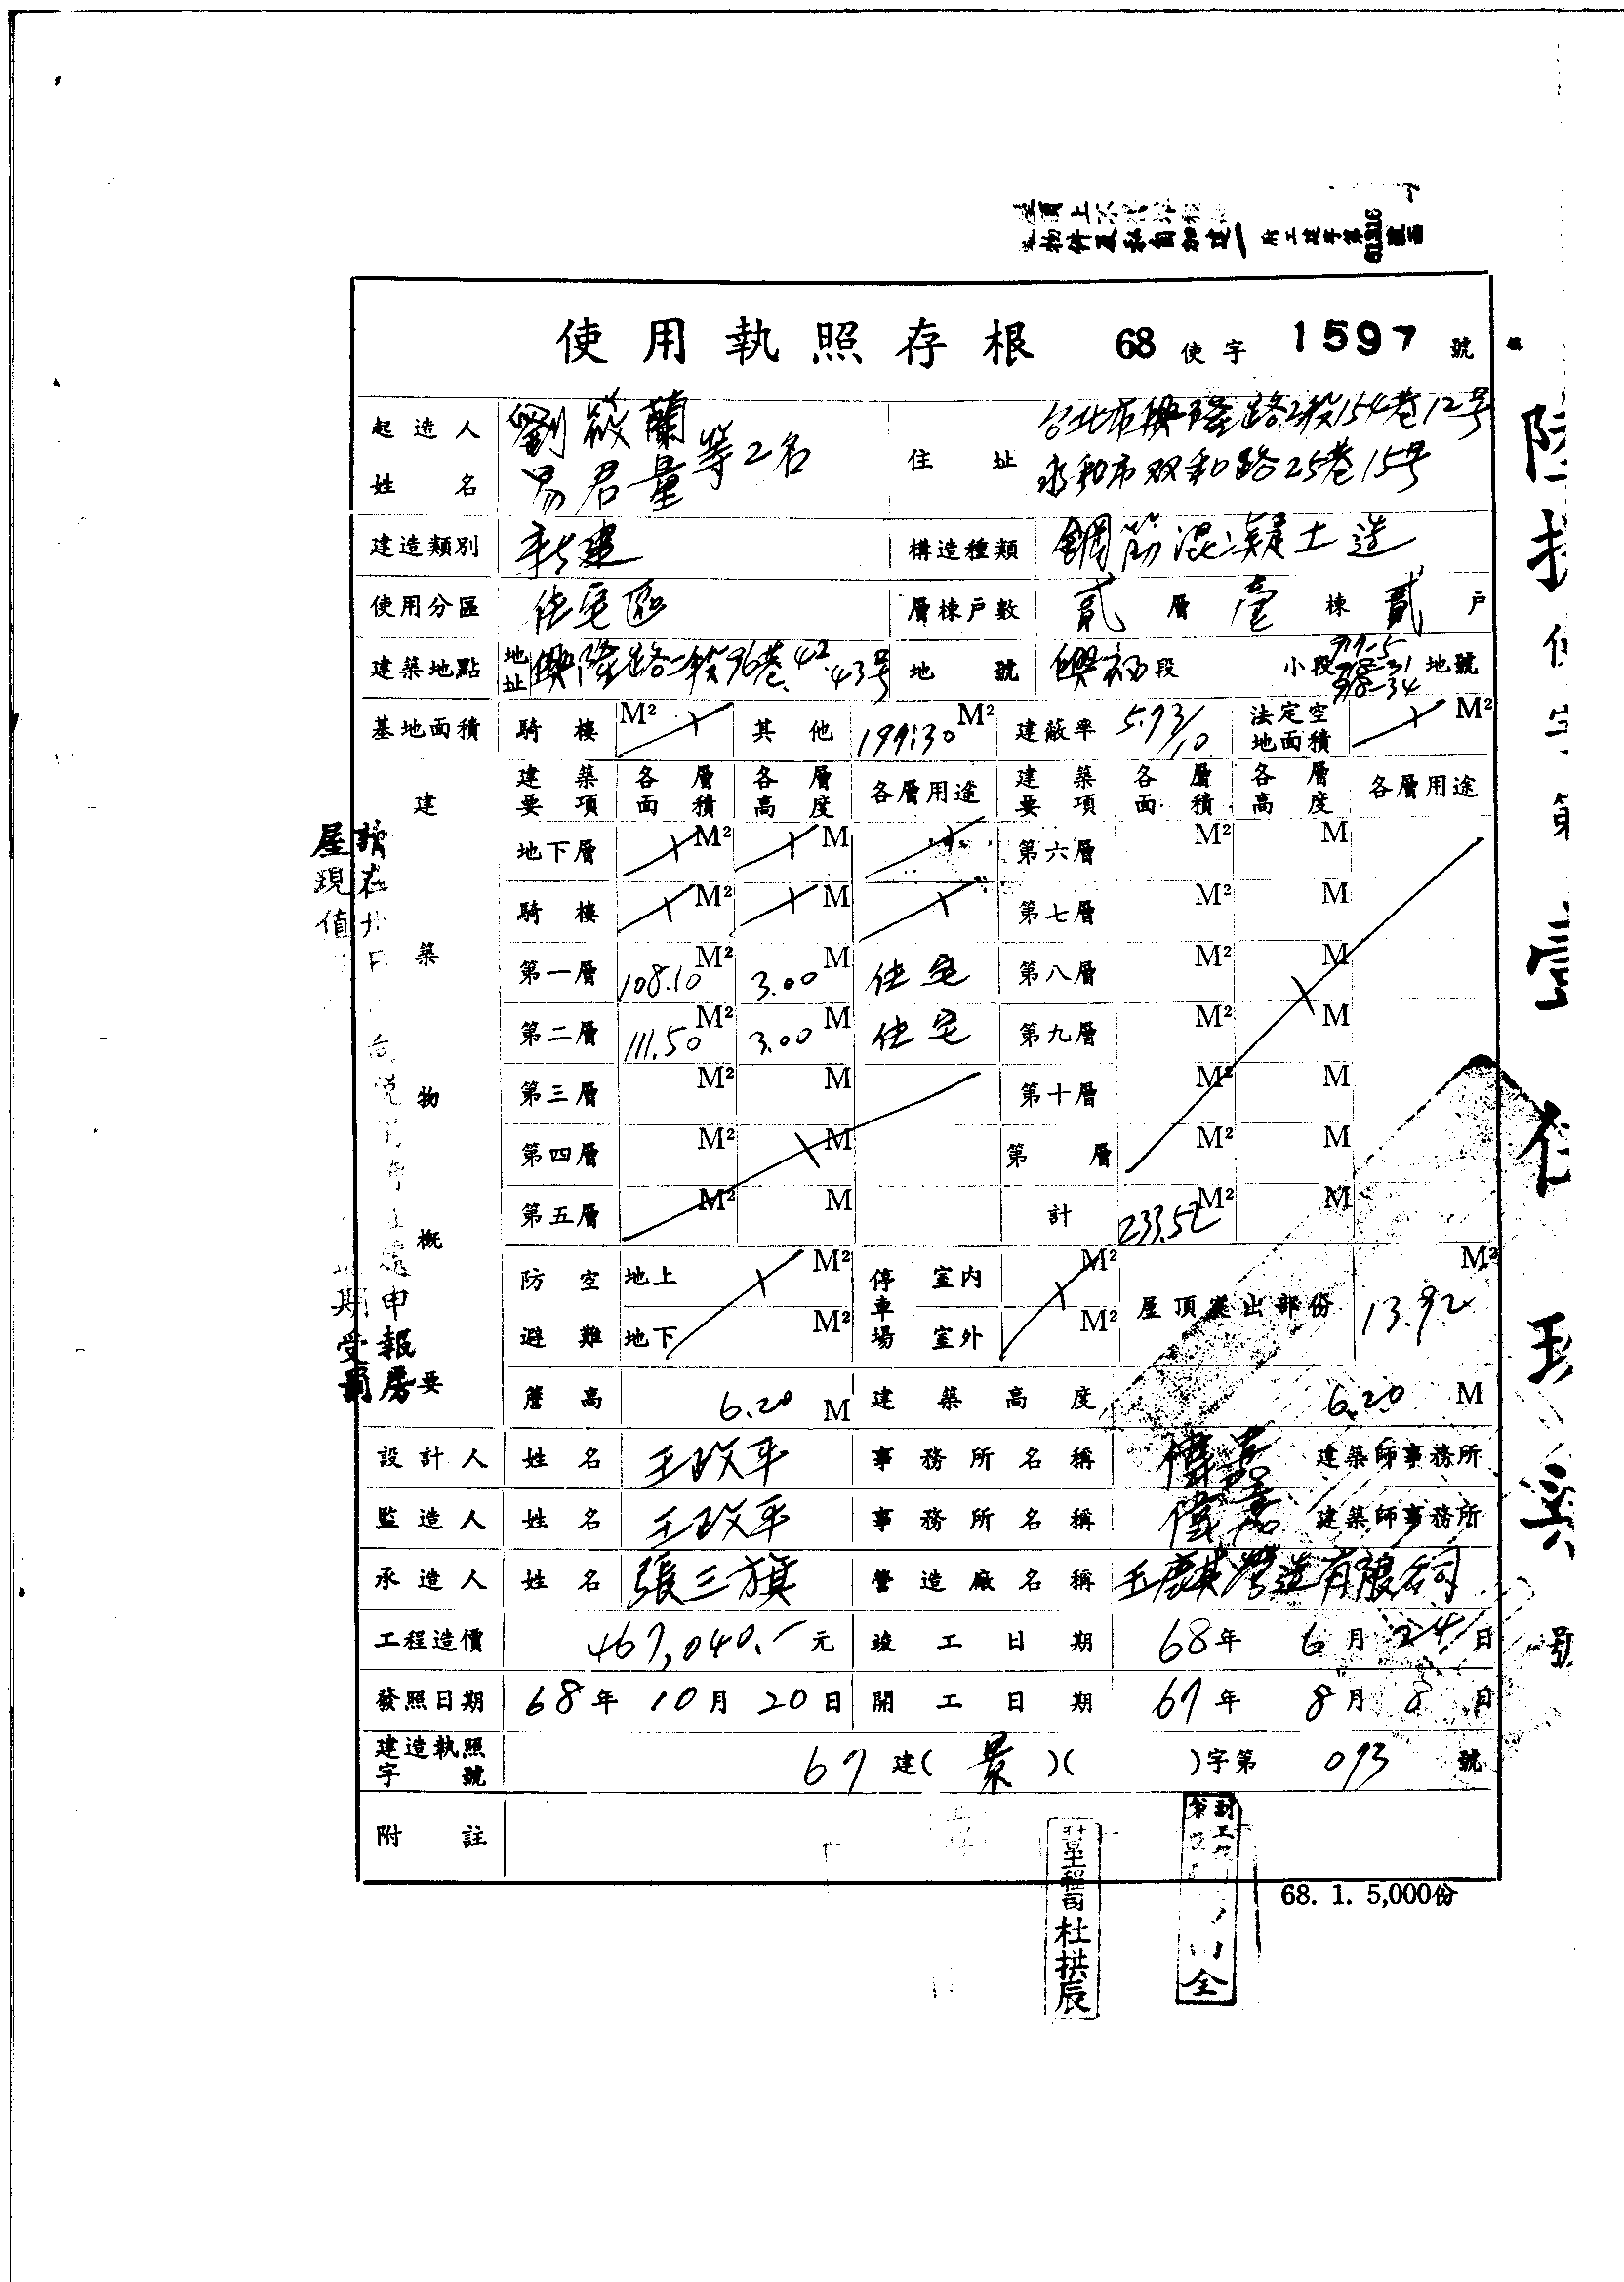 使用執照存根 68 使字 1597 號
起造人姓名 劉筱蘭 易君量 等2名 住址 台北市興隆路2段154巷12号
永和市双和路25巷15号
建造類別 新建 構造種類 鋼筋混凝土造
使用分區 住宅區 層棟戶數 貳層壹棟貳戶
建築地點 地址 興隆路二段96巷42.43号 地號 興福段 小段 地號
基地面積 騎樓 M² 其他 199.30 M² 建蔽率 5.93/10 法定空地面積 M²
建築物概要
建築要項 各層面積 各層高度 各層用途 建築要項 各層面積 各層高度 各層用途
地下層 M² M 第六層 M² M
騎樓 M² M 第七層 M² M
第一層 108.10 M² 3.00 M 住宅 第八層 M² M
第二層 111.50 M² 3.00 M 住宅 第九層 M² M
第三層 M² M 第十層 M² M
第四層 M² M 第 層 M² M
第五層 M² M 計 233.52 M² M
防空避難 地上 M² 停車場 室內 M² 屋頂突出部份 13.92 M²
地下 M² 室外 M²
簷高 6.20 M 建築高度 6.20 M
設計人 姓名 王政平 事務所名稱 偉嘉 建築師事務所
監造人 姓名 王政平 事務所名稱 偉嘉 建築師事務所
承造人 姓名 張三旗 營造廠名稱
工程造價 467,040.- 元 竣工日期 68年 6月 24日
發照日期 68年 10月 20日 開工日期 67年 8月 8日
建造執照字號 67 建(景)( )字第 093 號
附註
68. 1. 5,000份
工程司 杜拱辰